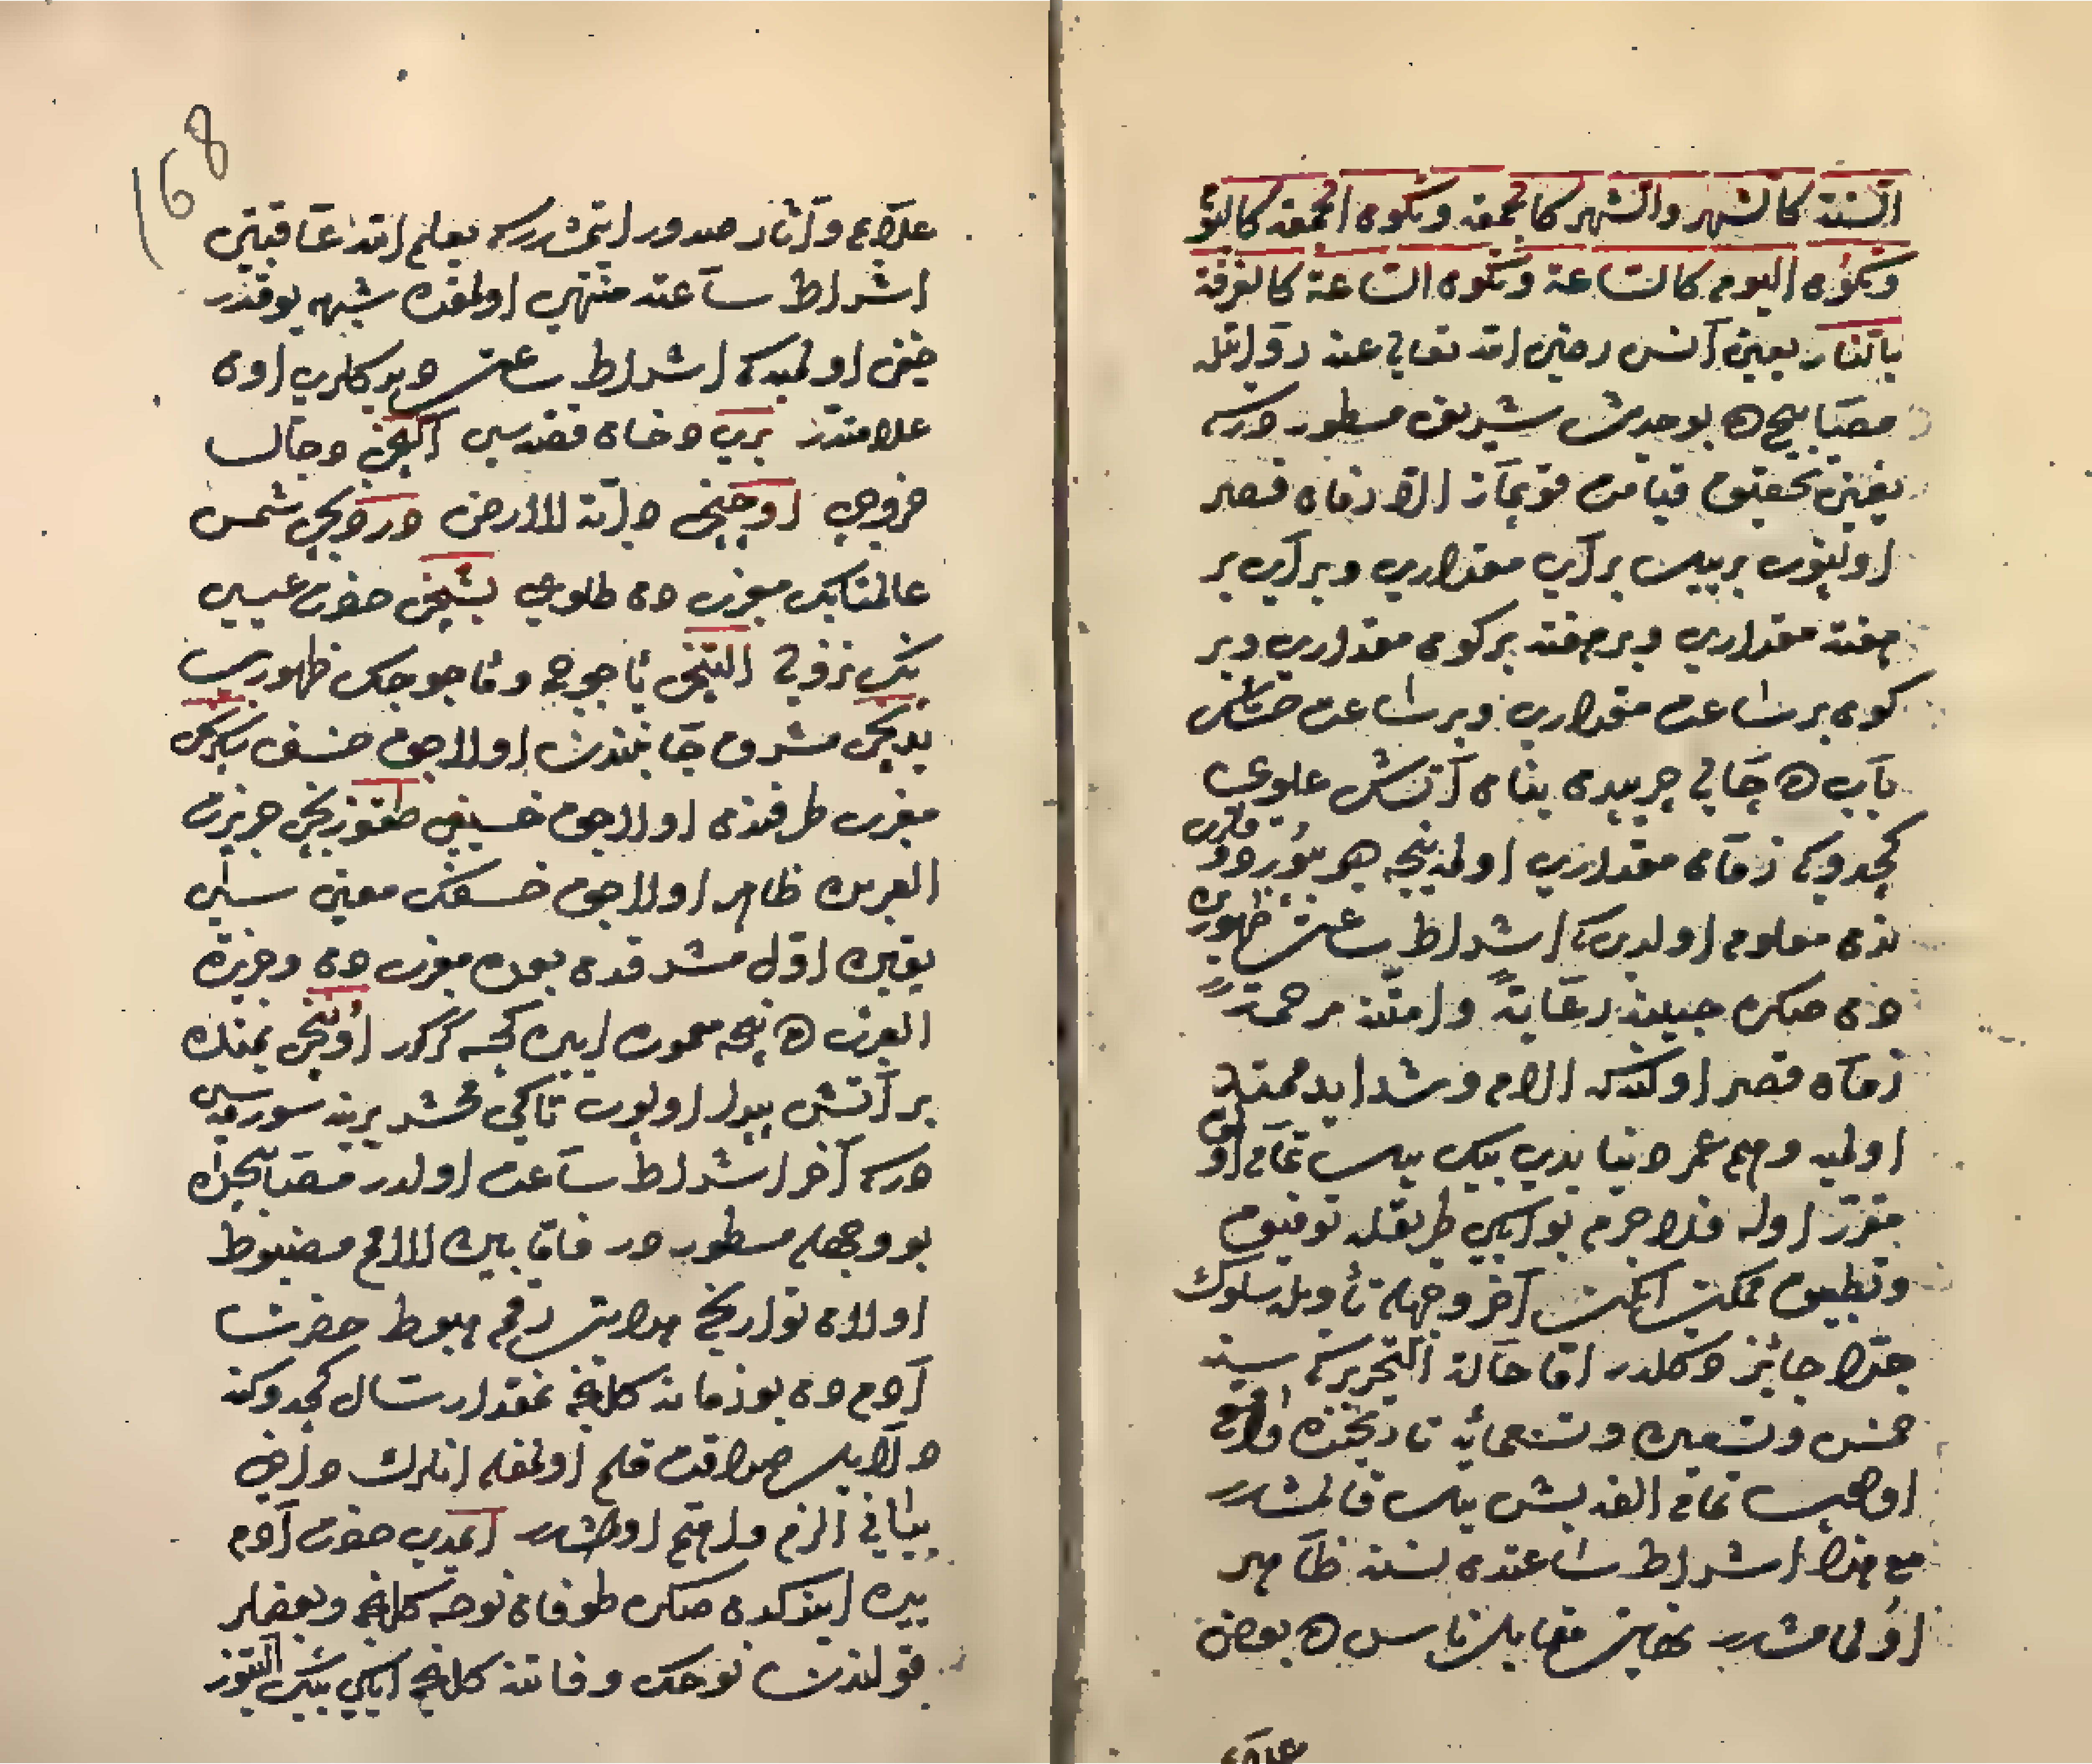 السّنة كالشهر والشهر كالجمعة وتكون الجمعة كاليوم
وتكون اليوم كالساعة وتكون الساعة كالضرفة
بالنار يعنى آنس رضى الله تعالى عنه روايتله
مصابيحده بو حديث شريف مسطور دركه
يعنى تحقيق قيامت قوپماز الا زمان قصير
اولنوب بر ييل بر آى مقدارى وبر آى بر
هفته مقدارى وبر هفته بر كون مقدارى وبر
كون بر ساعت مقدارى وبر ساعت خشاش
كچدوكى زمان مقدارى اولمينجه
ندن معلوم اولدى كه اشراط ساعت ظهورى
دن صكره حبيبنه رعاية وامتنه مرحمة
زمان قصر اولنكه آلام وشدايد ممتد
اولميه وهم عمر دنيا يدى بيك ييل تمام
مقرر اوله فلا جرم بو ايكى طريقله توفيق
وتطبيق ممكن ايكن آخر وجهله تأويله سلوك
جدا جائز دكلدر امّا حالة التحرير كه سنه
خمس وتسعين وتسعمائه تاريخنده
تمام الفه بش ييل قالمشدر
مع هذا اشراط ساعتدن نسنه ظاهر
اولمامشدر نهايت مقابله ناسده بعض
علايم
168
علايم وآثار صدور ايتمشدركه بعلم الله عاقبتى
اشراط ساعته منتهى اولمقده شبهه يوقدر
خفى اولميه كه اشراط ساعت ديدكلرى اون
علامتدر برى دخان قضيه سى ايكنجى دجالك
خروجى اوچنجى دابة الارض دردنجى شمس
عالمتابك مغربدن طلوعى بشنجى حضرت عيسى
نك نزولى التنجى ياجوج وماجوجك ظهورى
يدنجى مشرق جانبندن اولاجق خسف سكزنجى
مغرب طرفندن اولاجق خسف طقوزنجى جزيرة
العربده ظاهر اولاجق خسفك معنى سى
يعنى اول مشرقده بعده مغربده وجزيرة
العربده نيجه معموره ايره كچسه كركدر اوننجى يمنده
بر آتش پيدا اولوب تاكى محشر يرينه سورمه سى
دركه آخر اشراط ساعت اولدر مصابيحده
بو وجهله مسطوردر فامّا بين الامم مضبوط
اولان تواريخ هدايت رقم هبوط حضرت
آدمدن بو زمانه كلنجه نه مقدار سال كچدوكنه
دلايل صداقت قلم اولمغله انلرك دخى
بيانى الزم واهم اولمشدر ايمدى حضرت آدم
يره ايندكدن صكره طوفان نوحه كلنجه وبعضلر
قولندن نوحك وفاتنه كلنجه ايكى بيك